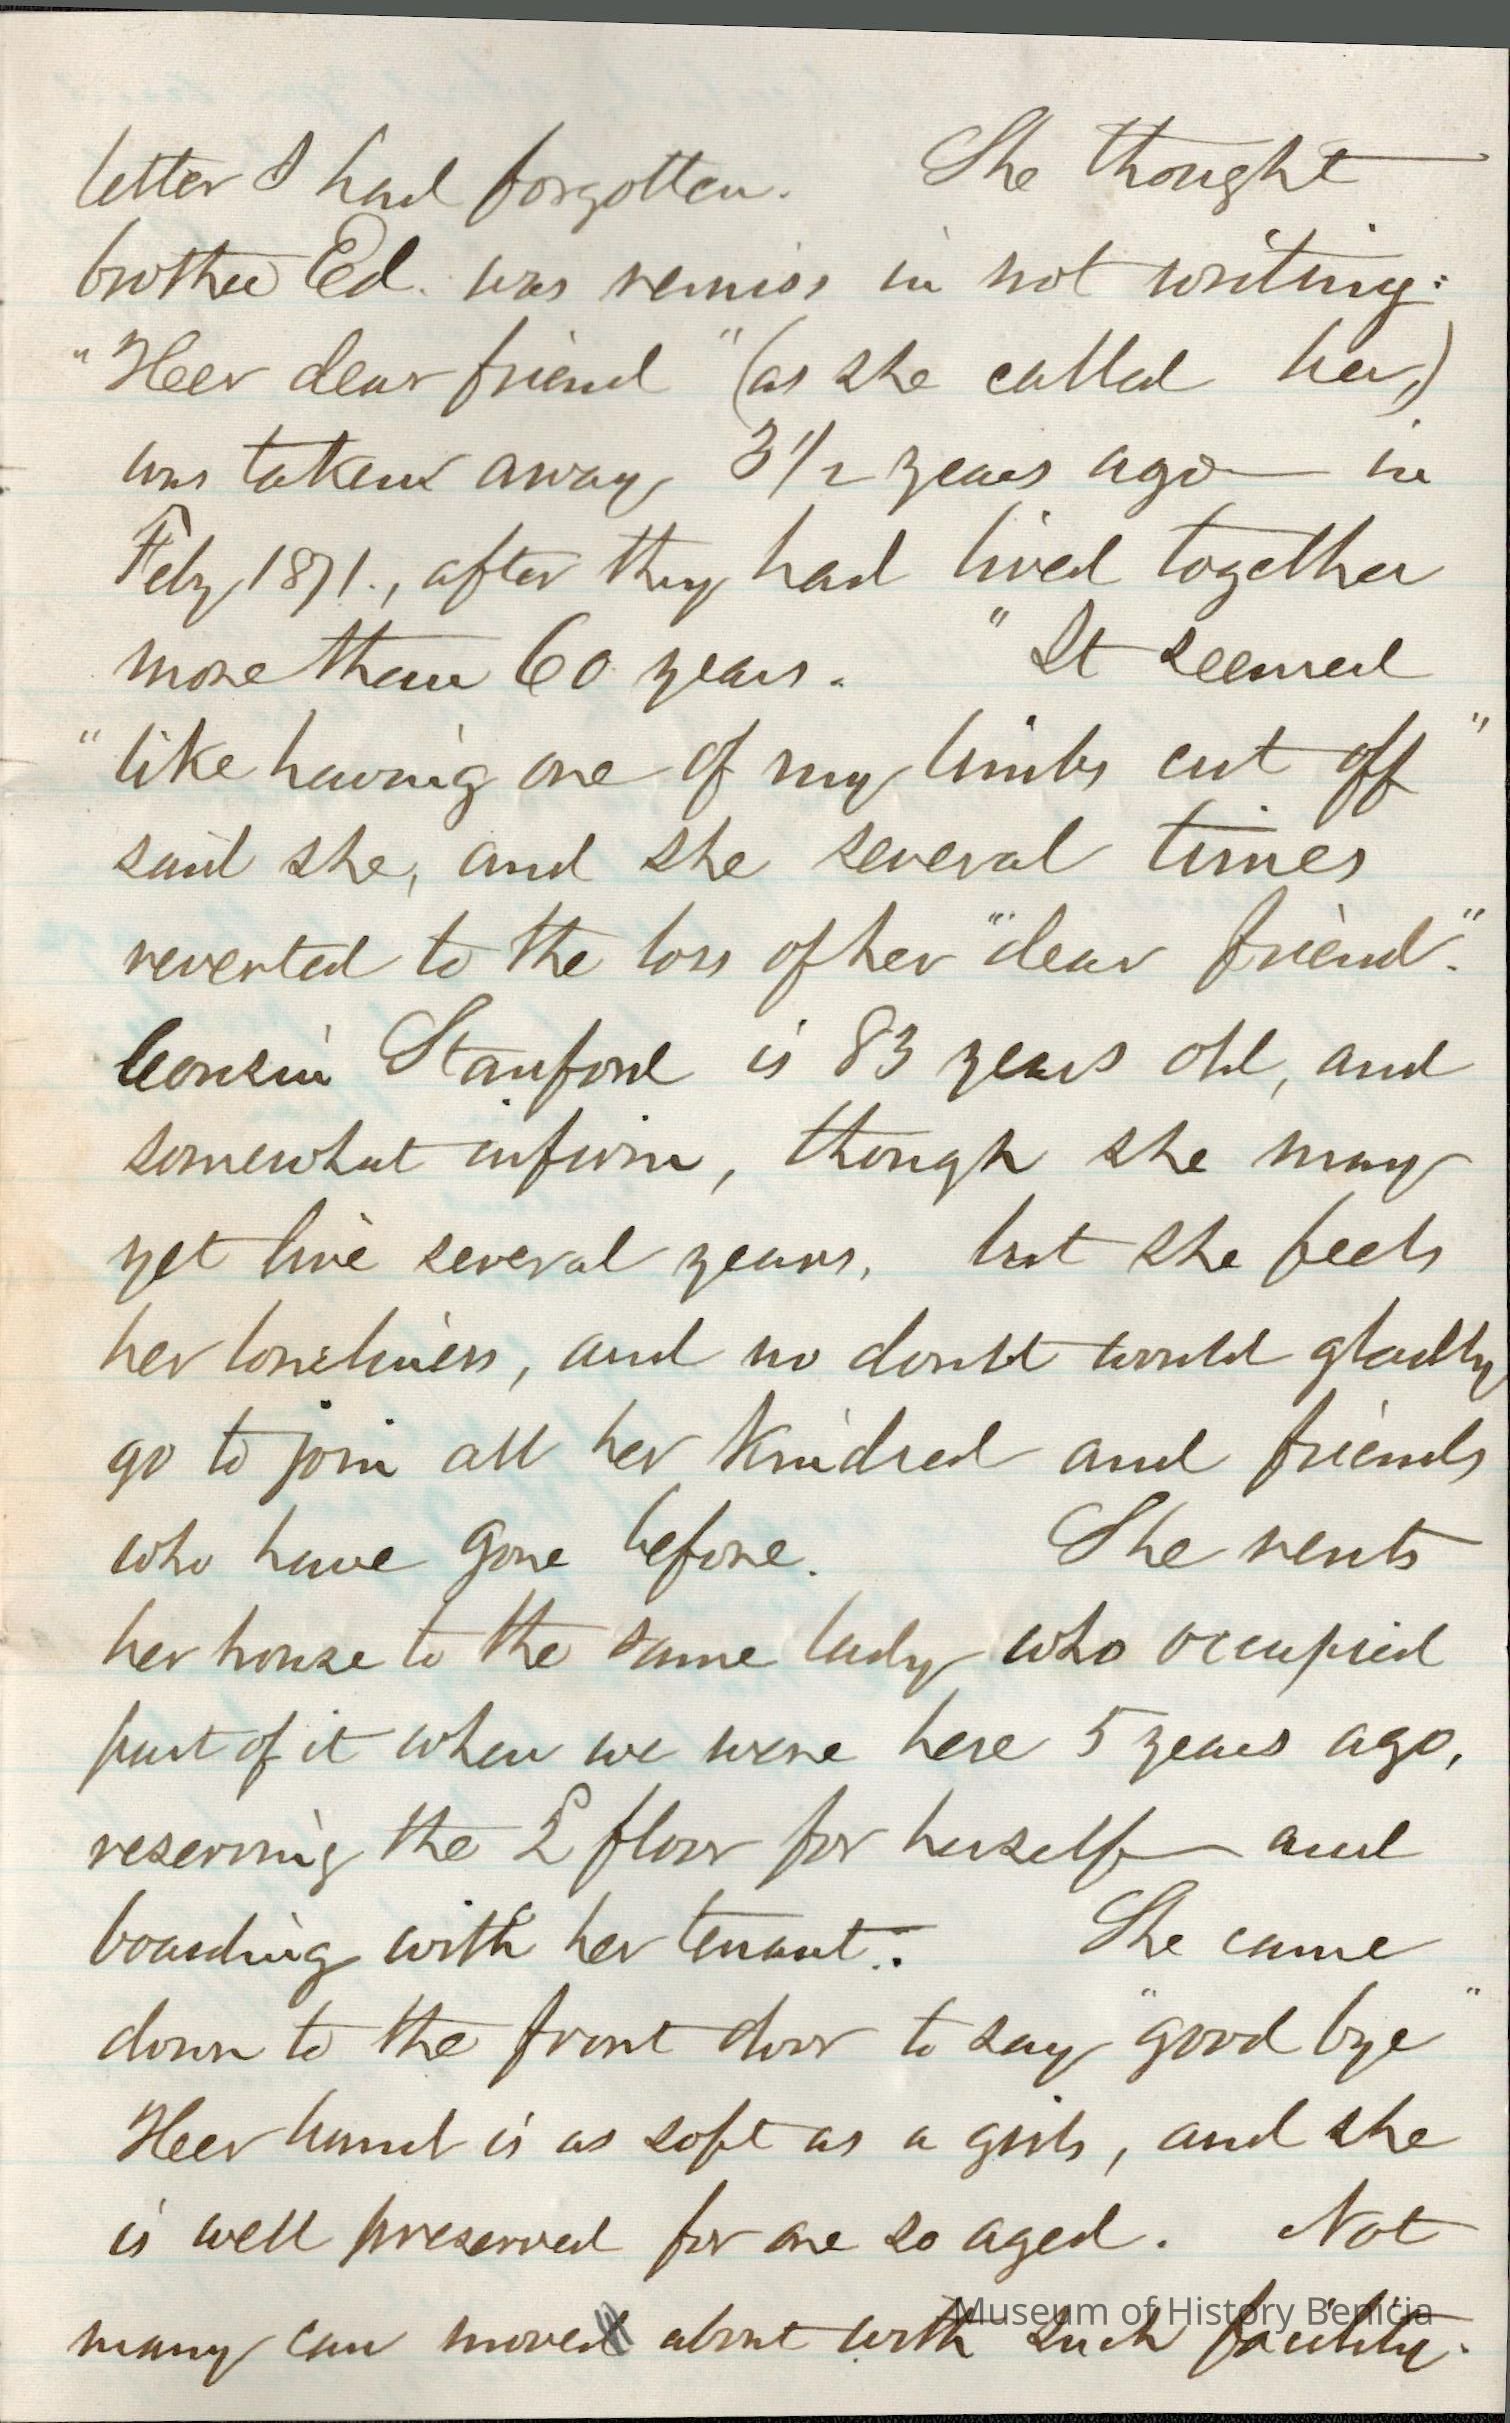 letter I had forgotten. She thought
brother Ed. was remiss in not writing:
"Her dear friend" (as she called her,)
was taken away 3 1/2 years ago in
Feby 1871., after they had lived together
more than 60 years. "It seemed
"like having one of my limbs cut off"
said she, and she several times
reverted to the loss of her "dear friend".
Cousin Stanford is 83 years old, and
somewhat infirm, though she may
yet live several years, but she feels
her loneliness, and no doubt would gladly
go to join all her kindred and friends
who have gone before. She rents
her house to the same lady who occupied
part of it when we were here 5 years ago,
reserving the 2d floor for herself and
boarding with her tenant. She came
down to the front door to say "good bye"
Her hand is as soft as a girls, and she
is well preserved for one so aged. Not
many can move about with such facility.
Museum of History Benicia